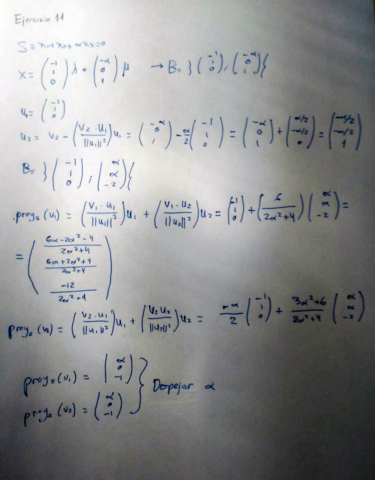 Ejercicio 11
S = x₁ + x₂ + αx₃ = 0
X = (-1 1 0) λ + (-α 0 1) μ → B = } (-1 1 0), (-α 0 1) {
u₁ = (-1 1 0)
u₂ = v₂ - (v₂·u₁ / ||u₁||²) u₁ = (-α 0 1) - α/2 (-1 1 0) = (-α 0 1) + (α/2 -α/2 0) = (-α/2 -α/2 1)
B = } (-1 1 0), (α α -2) {
proy_s (v₁) = (v₁·u₁ / ||u₁||²) u₁ + (v₁·u₂ / ||u₂||²) u₂ = (-1 1 0) + (6 / 2α²+4) (α α -2) =
= (6α-2α²-4 / 2α²+4 6α+2α²+4 / 2α²+4 -12 / 2α²+4)
proy_s (v₂) = (v₂·u₁ / ||u₁||²) u₁ + (v₂·u₂ / ||u₂||²) u₂ = α/2 (-1 1 0) + 3α²+6 / 2α²+4 (α α -2)
proy_s (v₁) =
proy_s (v₂) =
} Despejar α